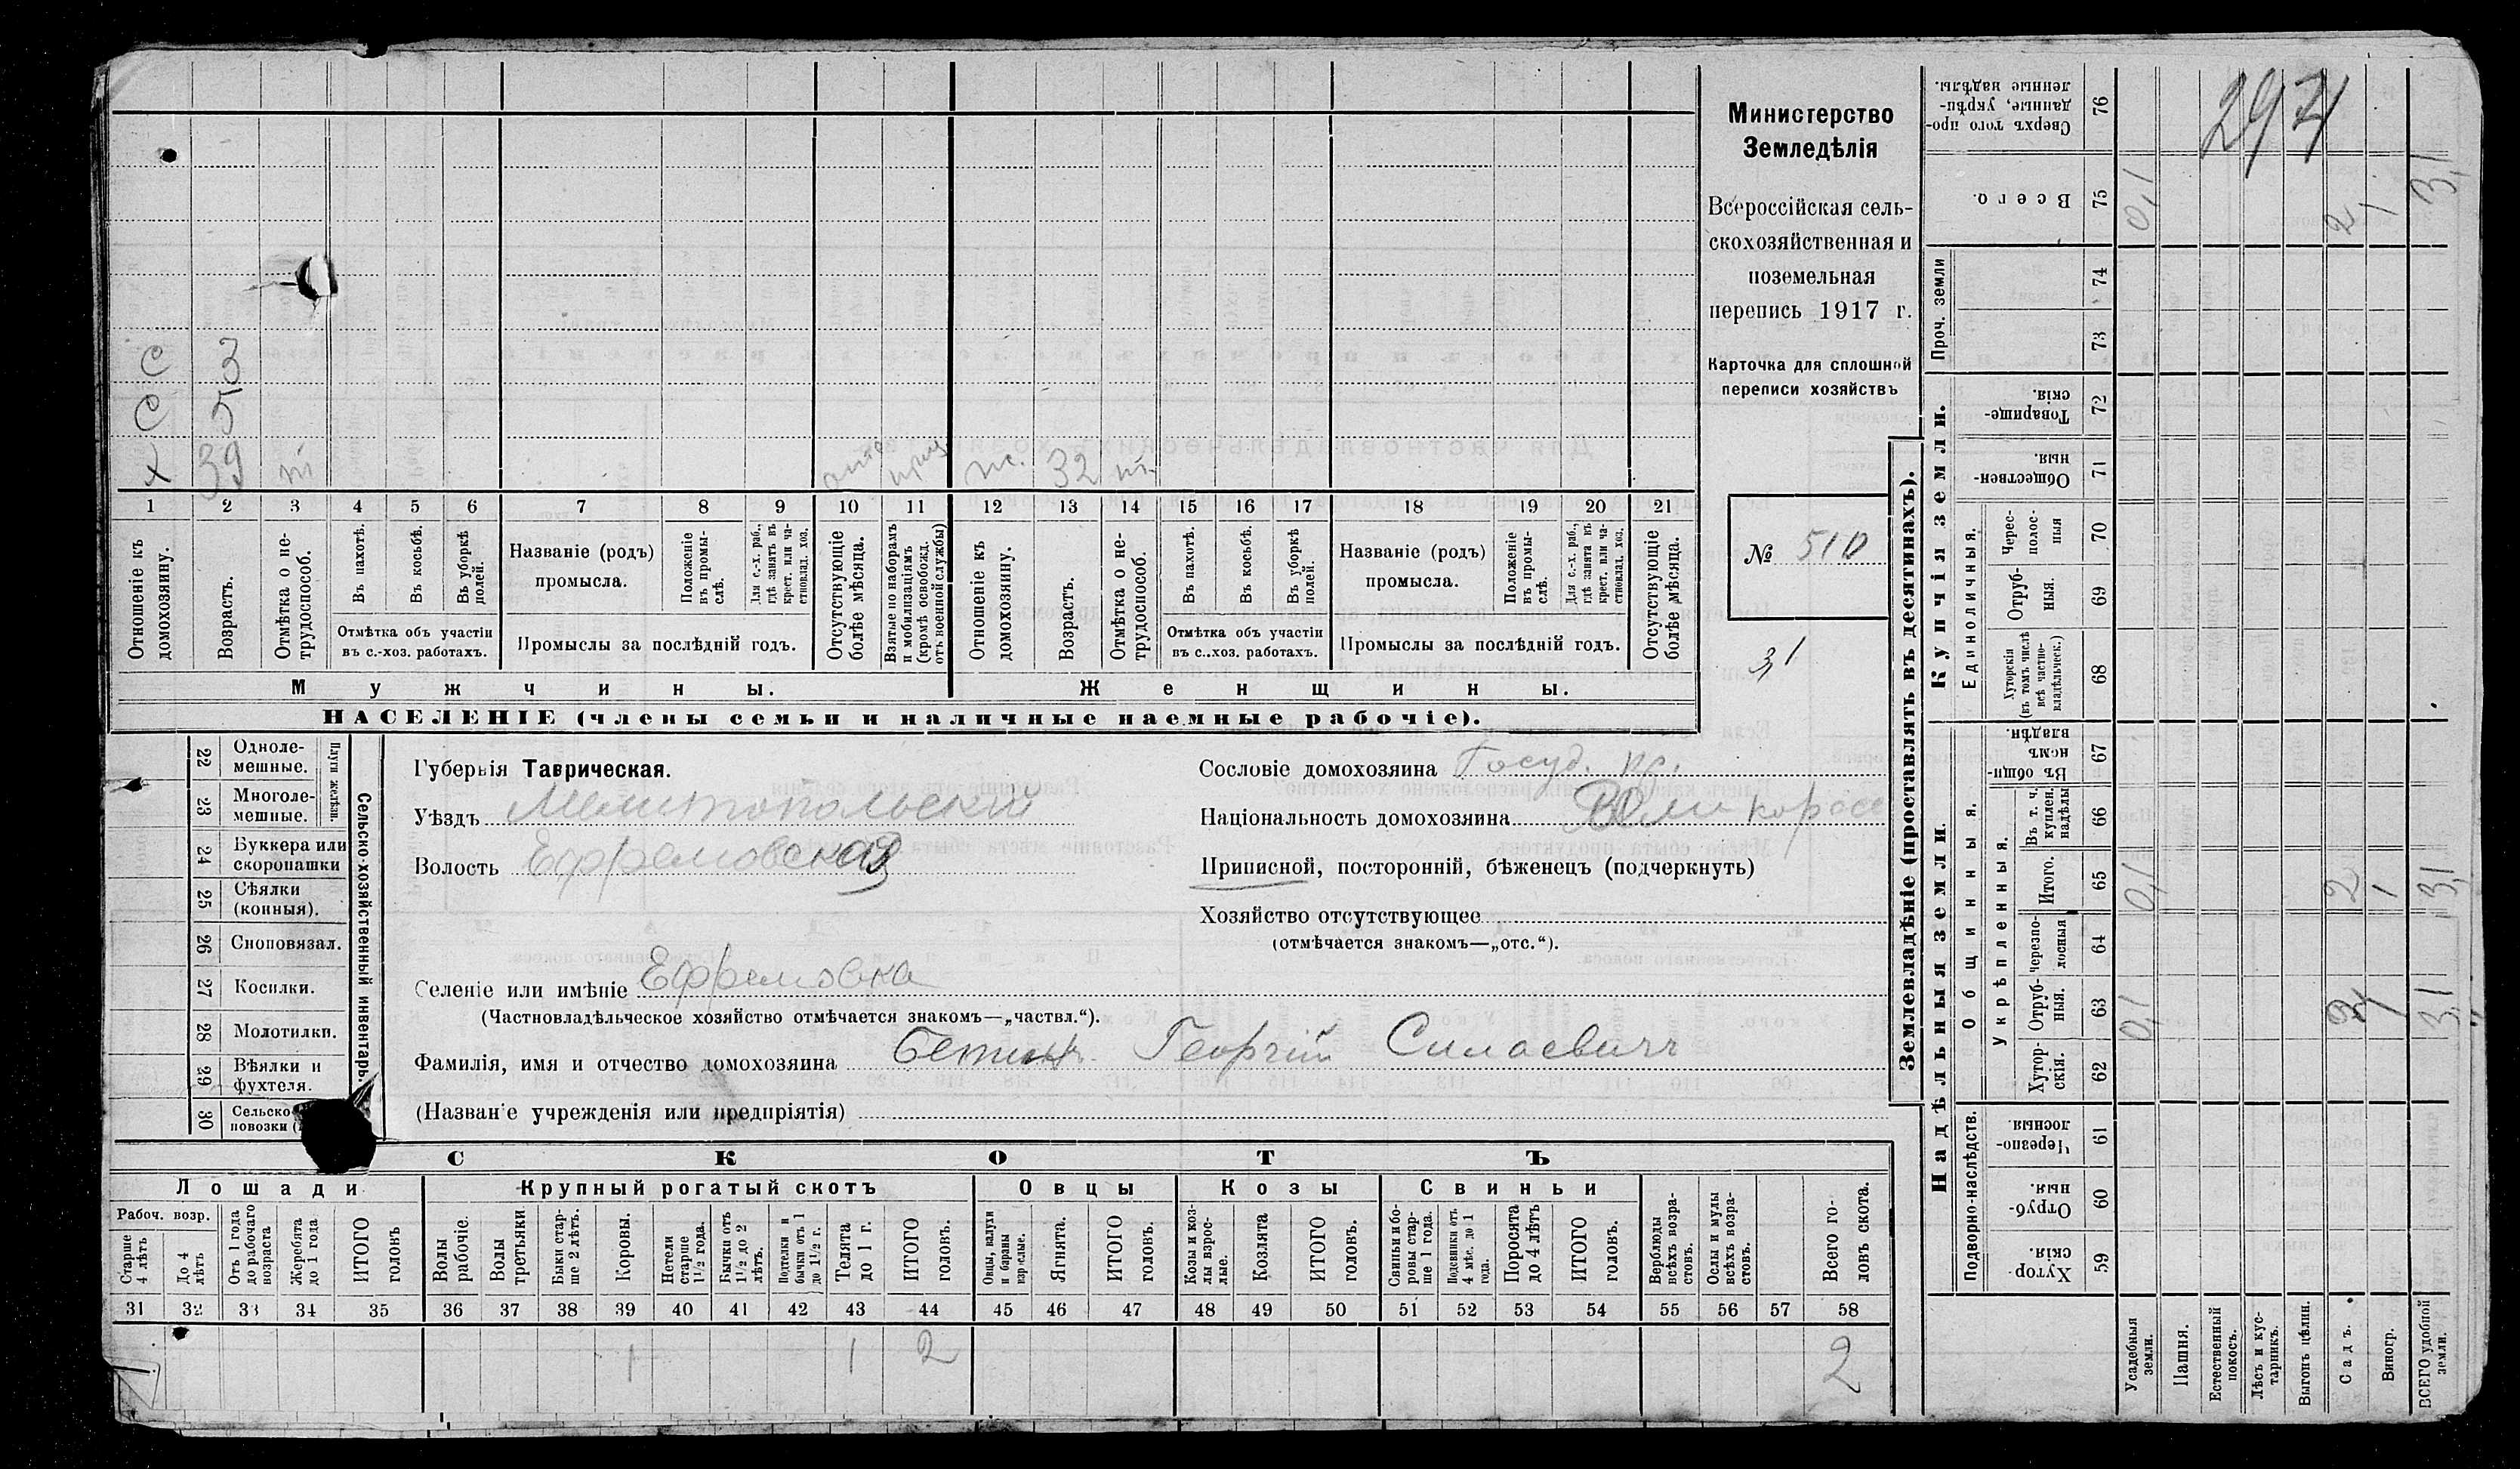 Министерство
Земледѣлія
Всероссійская сель-
скохозяйственная и
поземельная
перепись 1917 г.
Карточка для сплошной
переписи хозяйствъ
№ 510
31
294
С 3
С 5
Х 39 ж. 32
1 2 3 4 5 6 7 8 9 10 11 12 13 14 15 16 17 18 19 20 21
Отношеніе къ домохозяину.
Возрастъ.
Отмѣтка о не-трудоспособ.
Въ пахотѣ.
Въ косьбѣ.
Въ уборкѣ полей.
Отмѣтка объ участіи въ с.-хоз. работахъ.
Названіе (родъ) промысла.
Положеніе въ промы-слѣ.
Для с.-х. раб., гдѣ занятъ въ крест. или ча-стновлад. хоз.
Промыслы за послѣдній годъ.
Отсутствующіе болѣе мѣсяца.
Взятые по наборамъ и мобилизаціямъ (кромѣ освобожд. отъ военной службы)
Отношеніе къ домохозяину.
Возрастъ.
Отмѣтка о не-трудоспособ.
Въ пахотѣ.
Въ косьбѣ.
Въ уборкѣ полей.
Отмѣтка объ участіи въ с..хоз. работахъ.
Названіе (родъ) промысла.
Положеніе въ промы-слѣ.
Для с.-х. раб., гдѣ занята въ крест. или ча-стновлад. хоз.
Промыслы за послѣднiй годъ.
Отсутствующіе болѣе мѣсяца.
Мужчины. Женщины.
НАСЕЛЕНІЕ (члены семьи и наличные наемные рабочіе).
22 Одноле-мешные.
23 Многоле-мешные.
Плуги желѣзн.
24 Буккера или скоропашки
25 Сѣялки (конныя).
26 Сноповязал.
27 Косилки.
28 Молотилки.
29 Вѣялки и фухтеля.
30 Сельско-
повозки
Сельско-хозяйственный инвентарь.
Губернія Таврическая.
Уѣздъ Мелитопольскій
Волость Ефремовская
Селеніе или имѣніе Ефремовка
(Частновладѣльческое хозяйство отмѣчается знакомъ—„частвл.“).
Фамилія, имя и отчество домохозяина Георгій Силаевичъ
(Названіе учрежденія или предпріятія)
Сословіе домохозяина Госуд. кр.
Національность домохозяина Великоросс
Приписной, посторонній, бѣженецъ (подчеркнуть)
Хозяйство отсутствующее
(отмѣчается знакомъ—„отс.“).
СКОТЪ
Лошади Крупный рогатый скотъ Овцы Козы Свиньи
Рабоч. возр.
Старше 4 лѣтъ
До 4 лѣтъ
Отъ 1 года до рабочаго возраста
Жеребята до 1 года
ИТОГО головъ
Волы рабочіе.
Волы третьяки
Быки стар-ше 2 лѣтъ.
Коровы.
Нетели старше 1 1/2 года.
Бычки отъ 1 1/2 до 2 лѣтъ.
Подтелки и бычки отъ 1 до 1 1/2 г.
Телята до 1 г.
ИТОГО головъ.
Овцы, валухи и бараны взрослые.
Ягнята.
ИТОГО головъ.
Козы и коз-лы взрос-лые.
Козлята
ИТОГО головъ.
Свиньи и бо-ровы стар-ше 1 года.
Подсвинки отъ 4 мѣс. до 1 года.
Поросята до 4 лѣтъ
ИТОГО головъ.
Верблюды всѣхъ возра-стовъ.
Ослы и мулы всѣхъ возра-стовъ.
Всего го-ловъ скота.
31 32 33 34 35 36 37 38 39 40 41 42 43 44 45 46 47 48 49 50 51 52 53 54 55 56 57 58
1 1 2 2
Землевладѣніе (проставлять въ десятинахъ).
Купчія земли.
Надѣльныя земли.
Сверхъ того про-данные, укрѣп-ленные надѣлы. 76
Всего. 75 0,1 2 1 3,1
Проч. земли 74
73
Товарище-скія. 72
Обществен-ныя. 71
Единоличныя.
Черес-полос-ныя 70
Отруб-ныя. 69
Хуторскія (въ томъ числѣ всѣ частно-владѣльческ.) 68
Общинныя.
Въ общи-номъ владѣн. 67
Укрѣпленныя.
Въ т. ч. куплен. надѣлы 66
Итого. 65 0,1 2 1 3,1
черезпо-лосныя 64
Отруб-ныя. 63 0,1 2 1 3,1
Хутор-скія. 62
Подворно-наслѣдств.
Черезпо-лосныя. 61
Отруб-ныя. 60
Хутор-скія. 59
Усадебныя земли.
Пашня.
Естественный покосъ.
Лѣсъ и кус-тарникъ.
Выгонъ цѣлин.
Садъ.
Виногр.
ВСЕГО удобной земли.